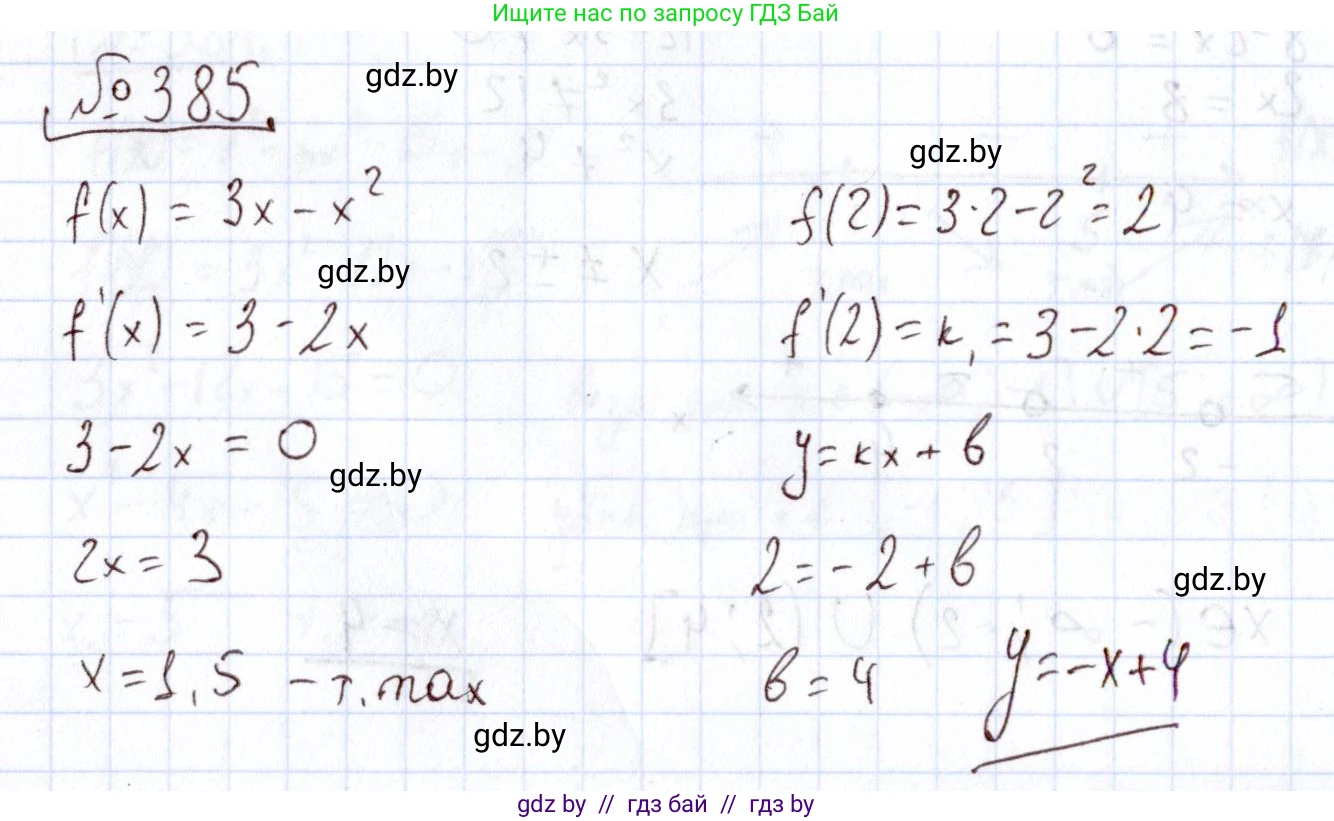 Ищите нас по запросу ГДЗ Бай
№ 385
gdz.by
f(x) = 3x - x²
gdz.by
f'(x) = 3 - 2x
3 - 2x = 0
gdz.by
2x = 3
x = 1,5 - т. max
gdz.by
gdz.by
f(2) = 3·2 - 2² = 2
f'(2) = k₁ = 3 - 2·2 = -1
y = kx + b
2 = -2 + b
gdz.by
b = 4
y = -x + 4
gdz by // гдз бай // гдз by